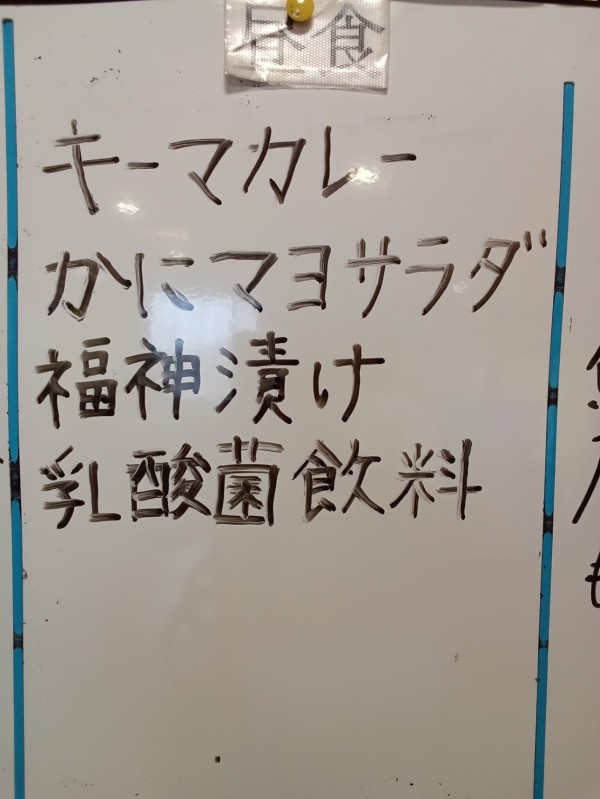 昼食
キーマカレー
かにマヨサラダ
福神漬け
乳酸菌飲料